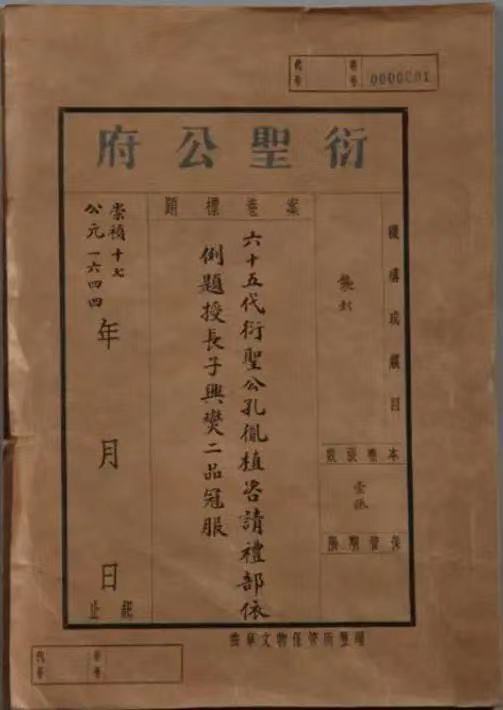 代号
卷号 0000001
衍聖公府
機構或類目
襲封
本卷張數
壹張
保管期限
案卷標題
六十五代衍聖公孔胤植咨請禮部依
例題授長子興燮二品冠服
崇禎十七
公元一六四四
年 月 日
起止
曲阜文物保管所整理
代号